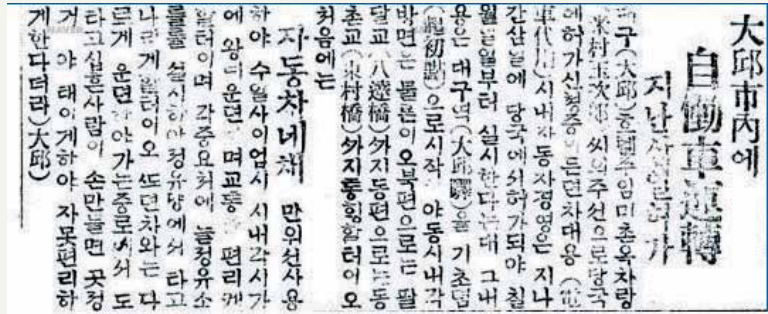 大邱市內에
自働車運轉
지난삼일에허가
대구(大邱)호텔주임미촌옥차랑
(米村玉次郞)씨의주선으로당국
에허가신청중이든뎐차대용(電
車代用)시내자동차경영은 지나
간삼일에 당국에서허가되야 칠
월일일부터 실시한다는대 그내
용은 대구역(大邱驛)을 기초뎜
(起初點)으로시작 야동시내각
방면는 물론이오북편으로는 팔
달교(八達橋)외지동편으로는동
촌교(東村橋)외지통힝할터이오
처음에는
자동차네채 만위선사용
하야 수월사이업시 시내각시가
에 왕리운뎐 며교통 편리케
할터이며 각중요처에 뎡유소
를 실시하야정유댱에서 타고
나리게할터이오 또뎐차와는 다
르게 운뎐 야가는중로에서 도
타고십흔사람이 손만들면 곳정
거 야 태이게하야 자못편리하
게한다더라(大邱)